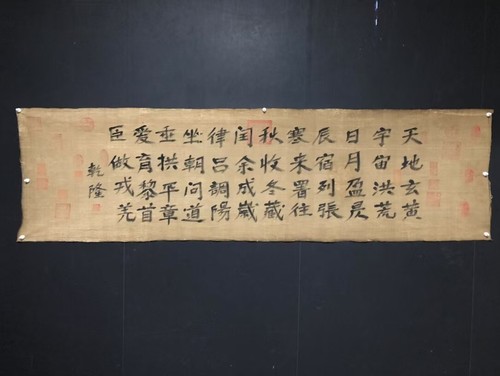 天地玄黄
宇宙洪荒
日月盈昃
辰宿列張
寒来署往
秋收冬藏
閏余成歲
律吕調陽
坐朝问道
垂拱平章
愛育黎首
臣做戎羌
乾隆